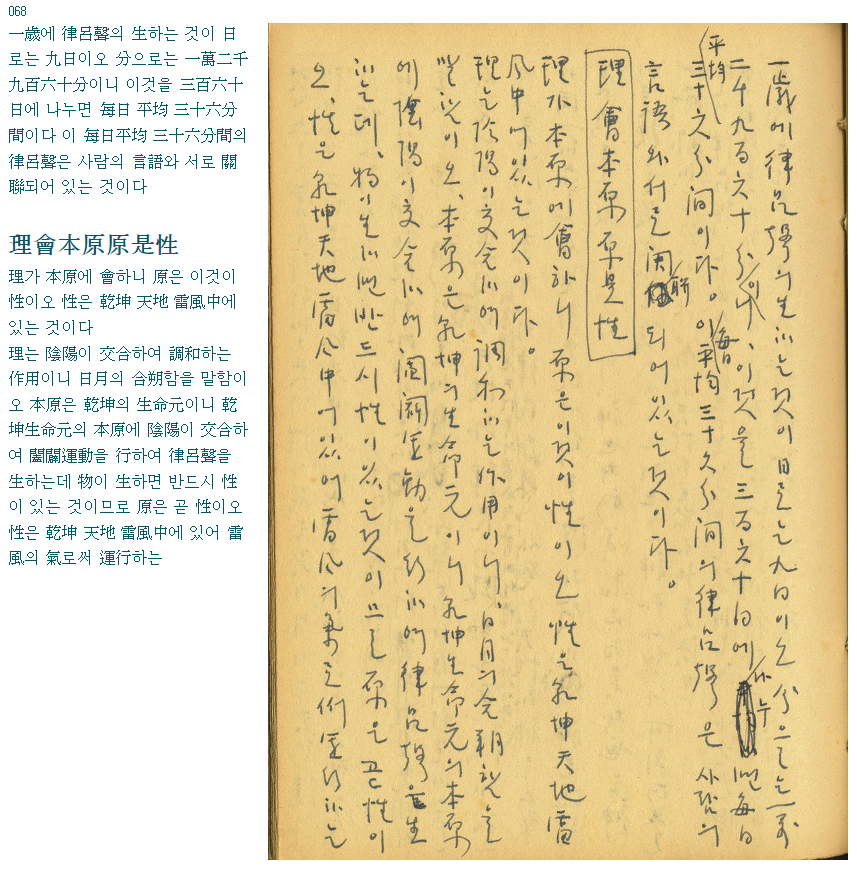 068
一歲에 律呂聲의 生하는 것이 日
로는 九日이오 分으로는 一萬二千
九百六十分이니 이것을 三百六十
日에 나누면 每日 平均 三十六分
間이다 이 每日平均 三十六分間의
律呂聲은 사람의 言語와 서로 關
聯되어 있는 것이다
理會本原原是性
理가 本原에 會하니 原은 이것이
性이오 性은 乾坤 天地 雷風中에
있는 것이다
理는 陰陽이 交合하여 調和하는
作用이니 日月의 合朔함을 말함이
오 本原은 乾坤의 生命元이니 乾
坤生命元의 本原에 陰陽이 交合하
여 闔闢運動을 行하여 律呂聲을
生하는데 物이 生하면 반드시 性
이 있는 것이므로 原은 곧 性이오
性은 乾坤 天地 雷風中에 있어 雷
風의 氣로써 運行하는
一歲에 律呂聲의 生하는 것이 日로는 九日이오 分으로는 一萬
二千九百六十分이니, 이것을 三百六十日에 나누면 每日
平均 三十六分間이다. 이 每日平均 三十六分間의 律呂聲은 사람의
言語와 서로 関聯되어 있는 것이다.
理會本原原是性
理가 本原에 會하니 原은 이것이 性이오 性은 乾坤天地雷
風中에 있는 것이다.
理는 陰陽이 交合하여 調和하는 作用이니, 日月의 合朔함을
말함이오, 本原은 乾坤의 生命元이니 乾坤生命元의 本原
에 陰陽이 交合하여 闔闢運動을 行하여 律呂聲을 生
하는데, 物이 生하면 반드시 性이 있는 것이므로 原은 곧 性이
오, 性은 乾坤天地雷風中에 있어 雷風의 氣로써 運行하는